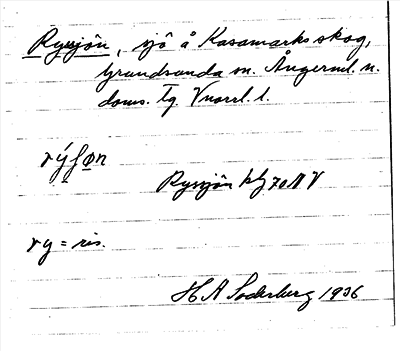 Ryssjön, sjö å Kasamarks skog,
Grundsunda sn. Ångerml. n.
doms. Tg. Vnorrl. l.
rýʃøn
Ryssjön kbl 70 NV
ry = ris.
H A Söderberg 1936